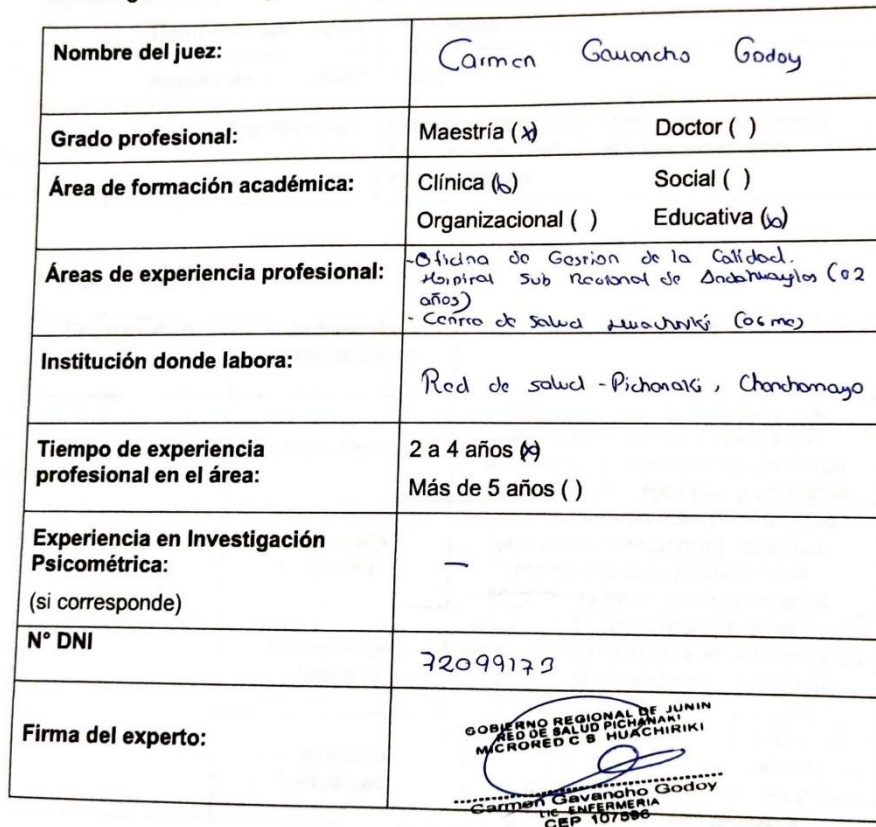 Nombre del juez: Carmen Gavancho Godoy
Grado profesional: Maestría (x) Doctor ( )
Área de formación académica: Clínica (x) Social ( )
Organizacional ( ) Educativa (x)
Áreas de experiencia profesional: - Oficina de Gestion de la Calidad.
Hospital Sub Regional de Andahuaylas (02
años)
- Centro de Salud Huachiriki (06 mes)
Institución donde labora:
Red de salud - Pichanaki, Chanchamayo
Tiempo de experiencia 2 a 4 años (x)
profesional en el área:
Más de 5 años ( )
Experiencia en Investigación
Psicométrica: —
(si corresponde)
N° DNI
Firma del experto:
GOBIERNO REGIONAL DE JUNIN
RED DE SALUD PICHANAKI
MICRORED C S HUACHIRIKI
Carmen Gavancho Godoy
LIC. ENFERMERIA
CEP 107596